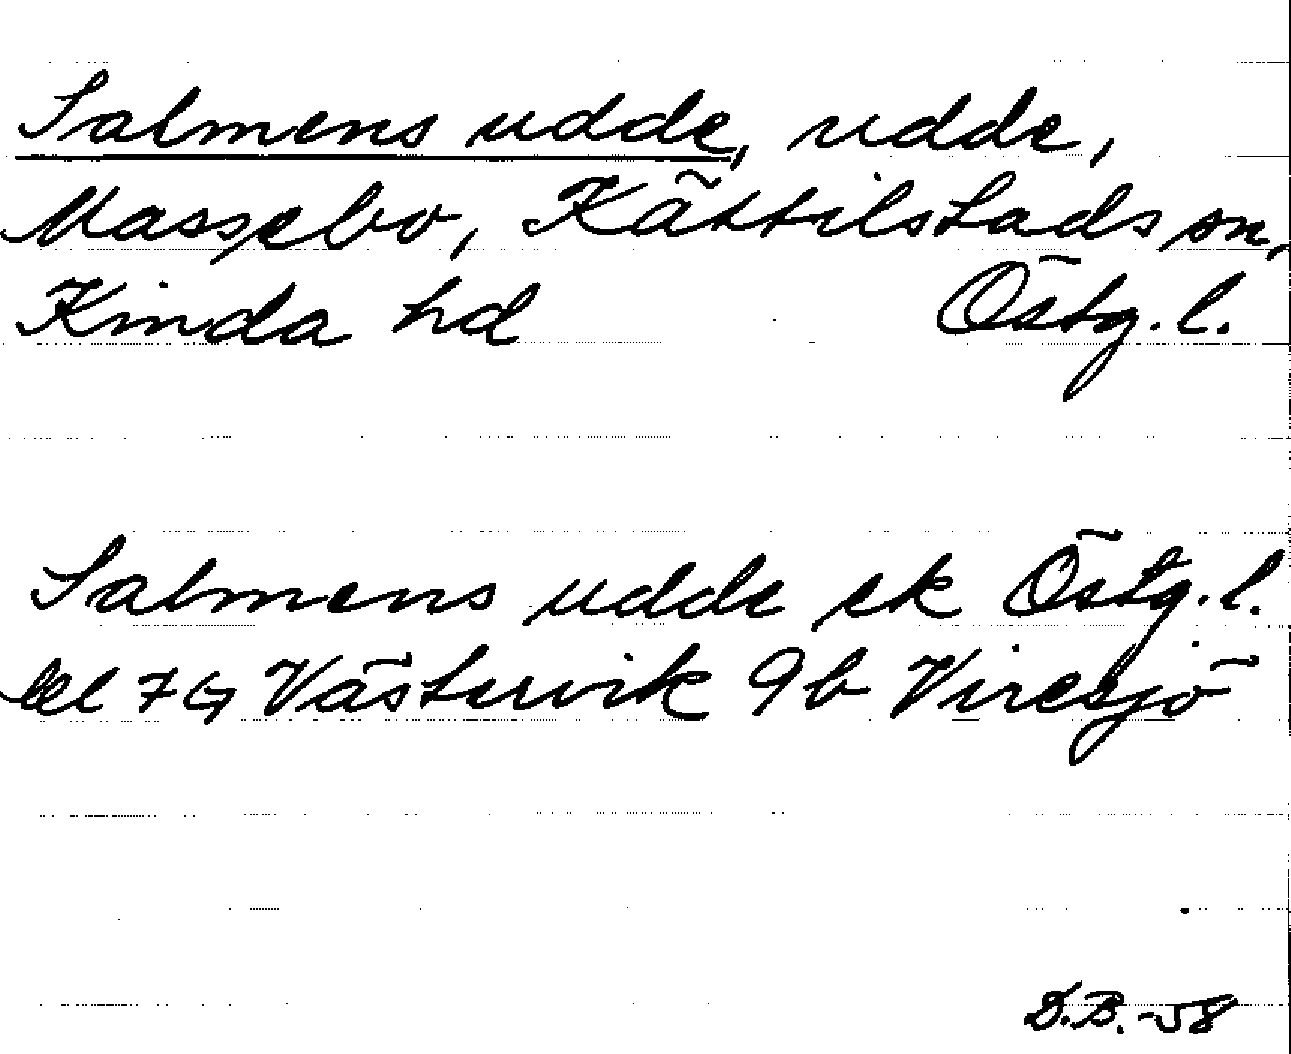 Salmens udde, udde,
Massebo, Kättilstads sn,
Kinda hd Östg. l.
Salmens udde ek Östg. l.
bl 7 G Västervik 9b Viresjö
D.B. -58